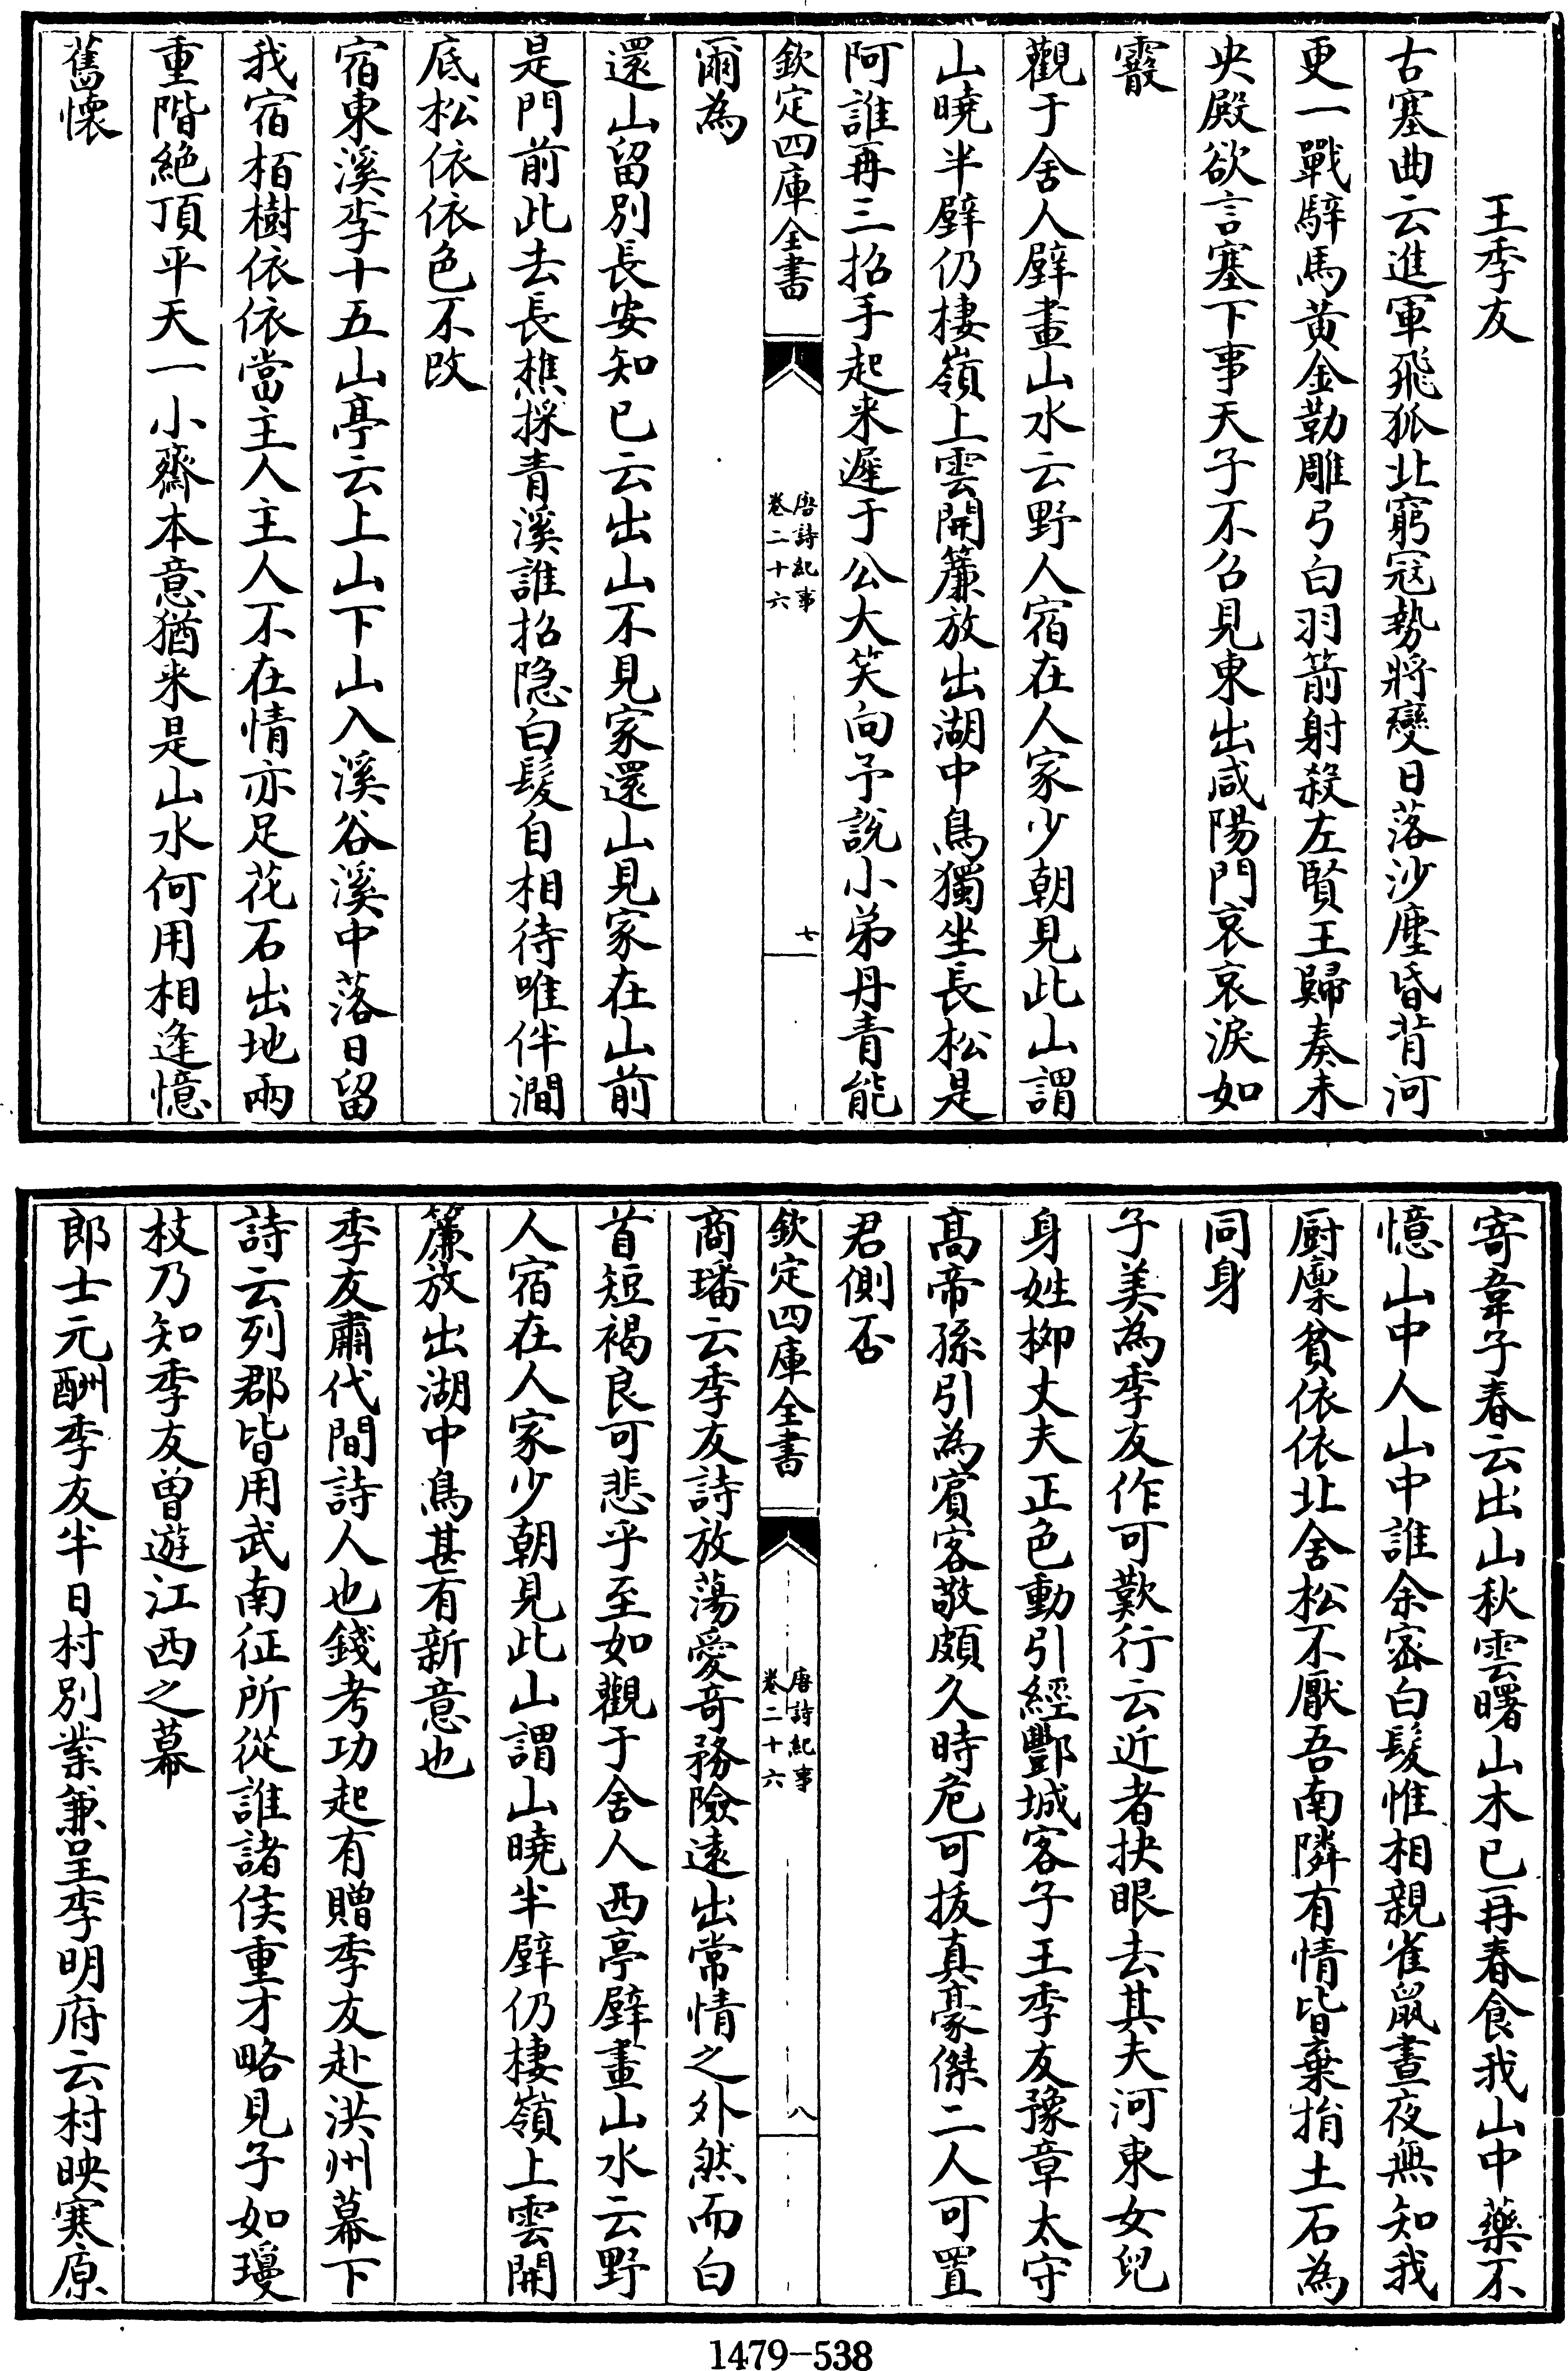 王季友
古塞曲云進軍飛狐北窮寇勢將變日落沙塵昏背河
更一戰騂馬黄金勒雕弓白羽箭射殺左賢王歸奏未
央殿欲言塞下事天子不召見東出咸陽門哀哀淚如
霰
觀于舍人壁畫山水云野人宿在人家少朝見此山謂
山曉半壁仍棲嶺上雲開簾放出湖中鳥獨坐長松是
阿誰再三招手起来遲于公大笑向予說小弟丹青能
爾為
欽定四庫全書
唐詩紀事
卷二十六
七
還山留別長安知已云出山不見家還山見家在山前
是門前此去長樵採青溪誰招隐白髮自相待唯伴澗
底松依依色不改
宿東溪李十五山亭云上山下山入溪谷溪中落日留
我宿栢樹依依當主人主人不在情亦足花石出地兩
重階絶頂平天一小齋本意猶来是山水何用相逢憶
舊懷
寄韋子春云出山秋雲曙山木已再春食我山中藥不
憶山中人山中誰余宻白髮惟相親雀鼠晝夜無知我
厨廩貧依依北舍松不厭吾南隣有情皆棄捐土石為
同身
子美為季友作可歎行云近者抉眼去其夫河東女兒
身姓栁丈夫正色動引經酆城客子王季友豫章太守
髙帝孫引為賔客敬頗久時危可扳真豪傑二人可置
君側否
欽定四庫全書
唐詩紀事
卷二十六
八
商璠云季友詩放蕩愛竒務險遠出常情之外然而白
首短褐良可悲乎至如觀于舍人西亭壁畫山水云野
人宿在人家少朝見此山謂山曉半壁仍棲嶺上雲開
簾放出湖中鳥甚有新意也
季友肅代間詩人也錢考功起有贈季友赴洪州幕下
詩云列郡皆用武南征所從誰諸侯重才略見子如瓊
枝乃知季友曾遊江西之幕
郎士元酬季友半日村別業兼呈李明府云村映寒原
1479-538